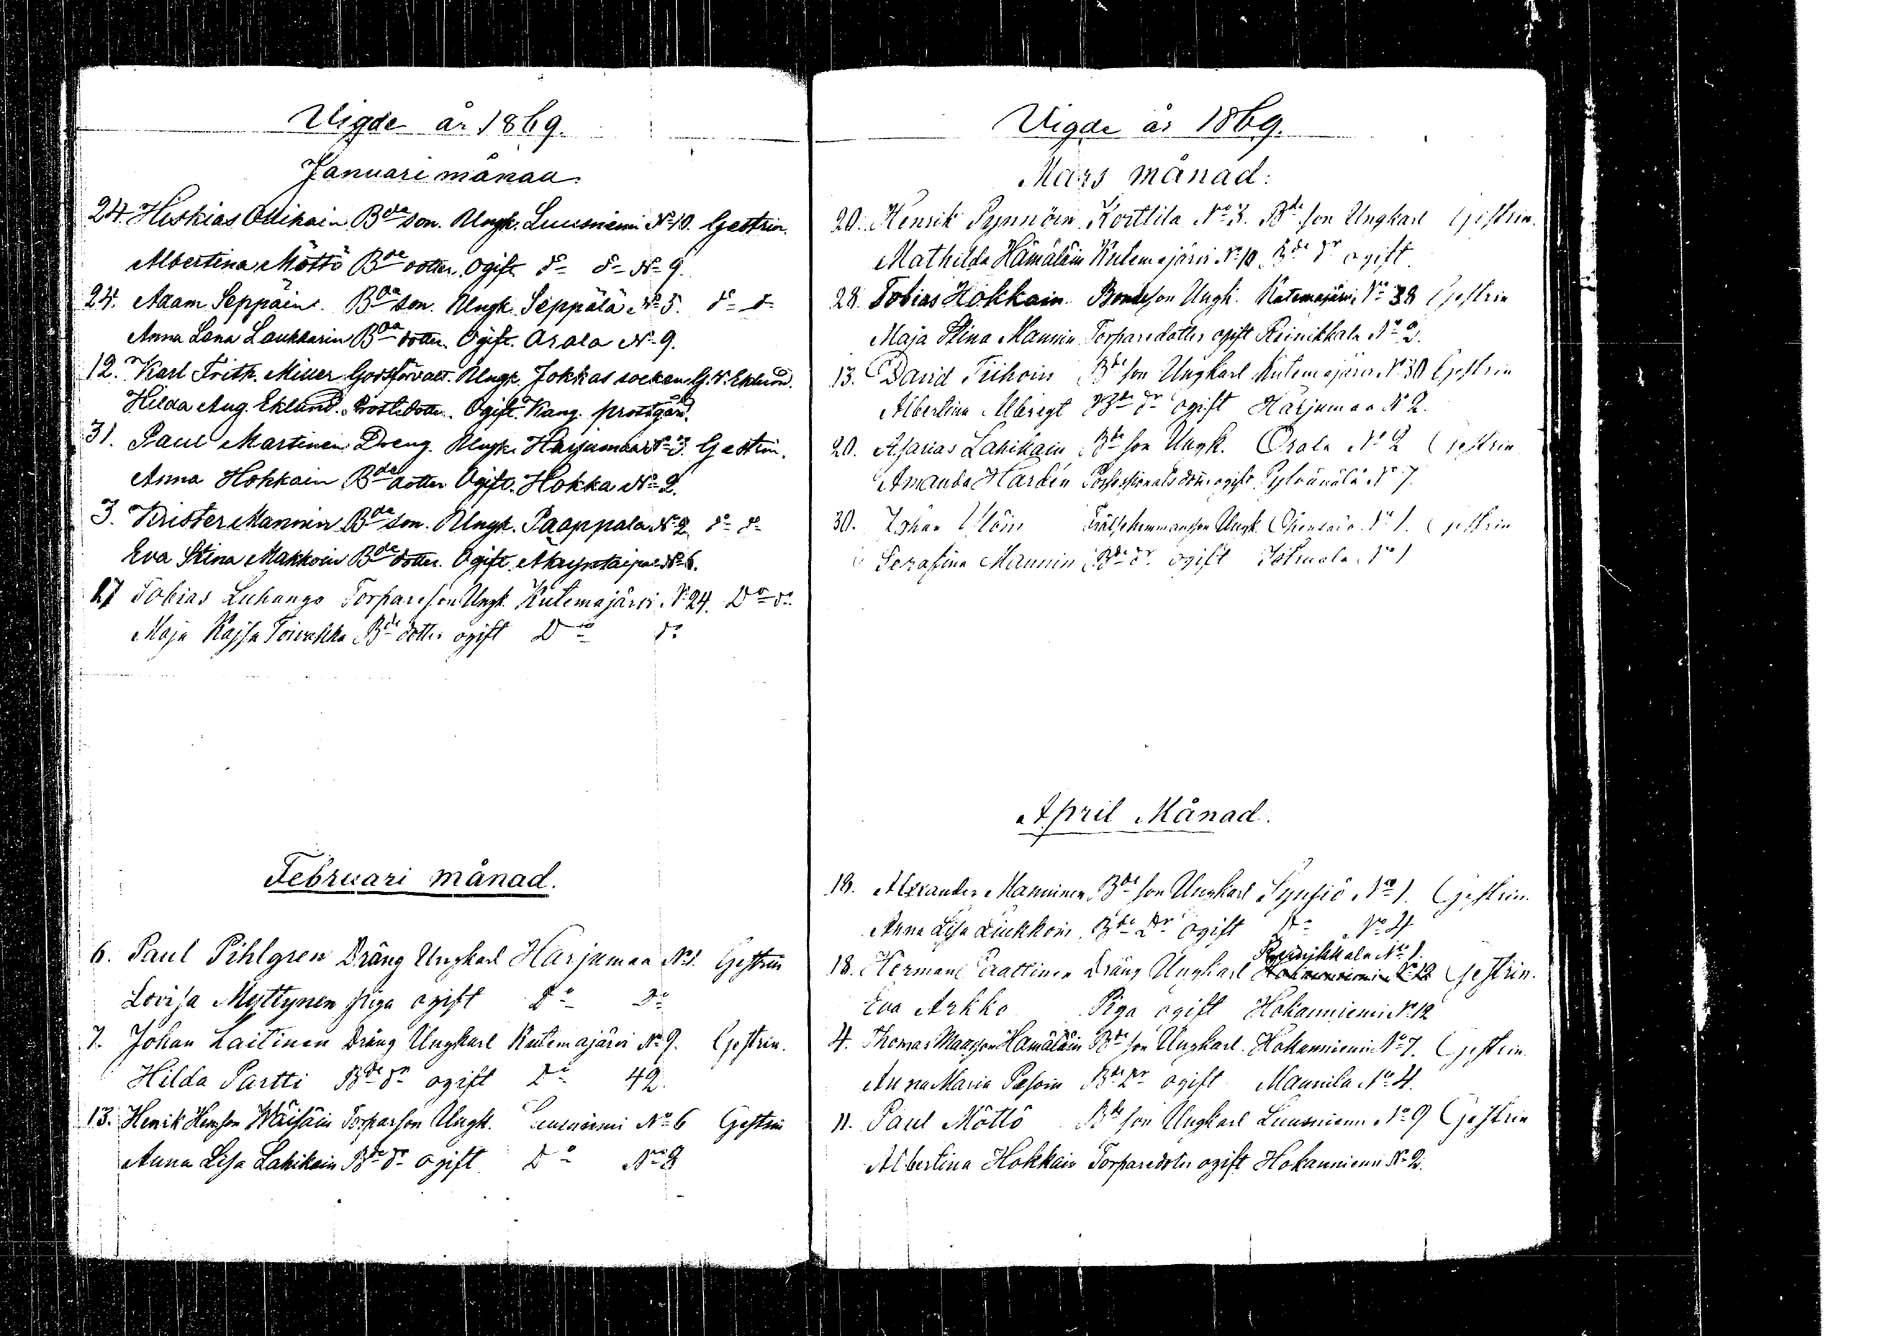 Vigde år 1869.
Januari månad.
24. Heskias Ollikain Bde son. Ungk. Luusniemi No 10. Gestrin.
Albertina Möttö Bde dotter. Ogift do do No 9.
24. Adam Seppäin. Bde son. Ungk. Seppälä No 5. do do
Anna Lena Laukkarin Bde dotter. Ogift. Orala No 9.
12. Karl Frith. Miller Godsförvalt. Ungk. Jokkas socken G. A. Eklund.
Hilda Aug. Eklund. Prostedotter. Ogift. Kang. prostgård.
31. Paul Martinen Dreng. Ungk. Harjumaa No 3. Gestrin.
Anna Hokkain Bde dotter Ogift. Hokka No 2.
3. Krister Mannin Bde son. Ungk. Paappala No 2 do do
Eva Stina Makkoin Bde dotter. Ogift No 6.
17 Tobias Luhango Torpareson Ungk. Kutemajärvi No 24. Do do
Maja Kajsa Bde dotter ogift Do do
Februari månad.
6. Paul Pihlgren Dräng Ungkarl Harjumaa No 1. Gestrin
Lovisa Myttynen piga ogift Do Do
7. Johan Laitinen Dräng Ungkarl Kutemajärvi No 9. Gestrin.
Hilda Partti Bde dr ogift Do 42.
13. Henrik Henrson Wäisäin Torparson Ungk. Luusniemi No 6 Gestrin
Anna Lisa Lahikain Bde dr ogift Do No 8
Vigde år 1869.
Mars månad:
20. Henrik Pynnöin Korttila No 3. Bde son Ungkarl Gestrin.
Mathilda Hämäläin Kutemajärvi No 10 Bde dr ogift.
28. Tobias Hokkain Bondeson Ungk. Kutemajärvi No 38 Gestrin
Maja Stina Mannin Torparedotter ogift Reinikkala No 2.
13. David Tiihoin Bde son Ungkarl Kutemajärvi No 30 Gestrin
Albertina Bde dr ogift Harjumaa No 2.
20. Asarias Lahikain Bde son Ungk. Orala No 2 Gestrin
Amanda Hardén ogift Pylvänälä No 7.
30. Johan Ylöin Frälsehemmanson Ungk. No 1. Gestrin
Serafina Mannin Bde dr ogift No 1
April Månad.
18. Alexander Manninen Bde son Ungkarl Synsiö No 1. Gestrin.
Anna Lisa Liukkoin Bde Dr Ogift Do No 4
Reinikkala No 1.
18. Herman Paattinen Dräng Ungkarl Hokanniemi No 12 Gestrin.
Eva Arkko Piga ogift Hokanniemi No 12
4. Thomas Mattson Hämäläin Bde son Ungkarl. Hokanniemi No 7. Gestrin.
Anna Maria Pasoin Bde Dr ogift Maunila No 4.
11. Paul Möttö Bde son Ungkarl Luusniemi No 9 Gestrin
Albertina Hokkain Torparedoter ogift Hokanniemi No 2.